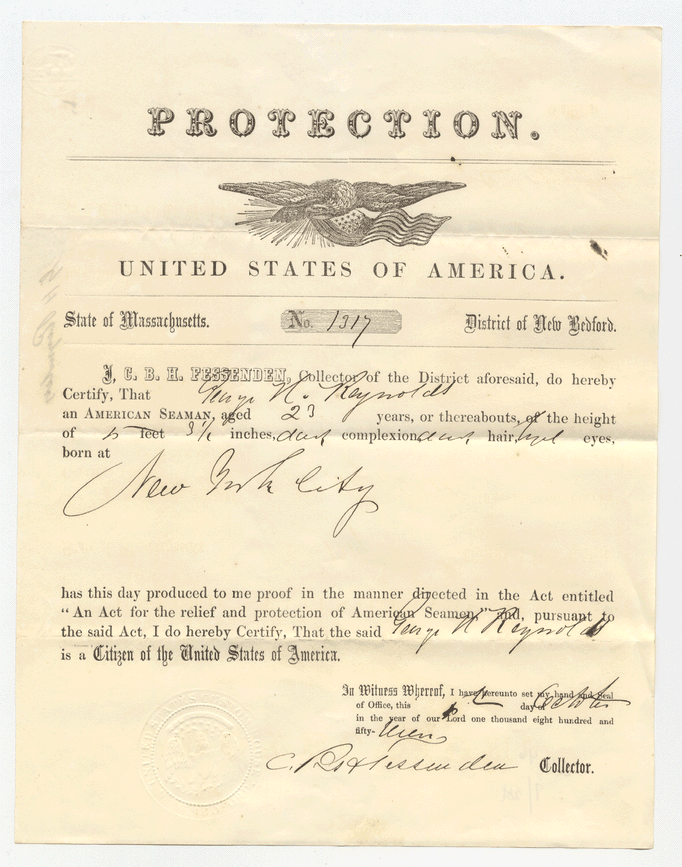 PROTECTION.
UNITED STATES OF AMERICA.
State of Massachusetts. No. 1317 District of New Bedford.
I, C. B. H. FESSENDEN, Collector of the District aforesaid, do hereby
Certify, That George H. Reynolds
an AMERICAN SEAMAN, aged 23 years, or thereabouts, of the height
of 5 feet 3½ inches, dark complexion dark hair, eyes,
born at
New York City
has this day produced to me proof in the manner directed in the Act entitled
"An Act for the relief and protection of American Seamen," and, pursuant to
the said Act, I do hereby Certify, That the said George H Reynolds
is a Citizen of the United States of America.
In Witness Whereof, I have hereunto set my hand and Seal
of Office, this day of October
in the year of our Lord one thousand eight hundred and
fifty-
C. B. H Fessenden Collector.